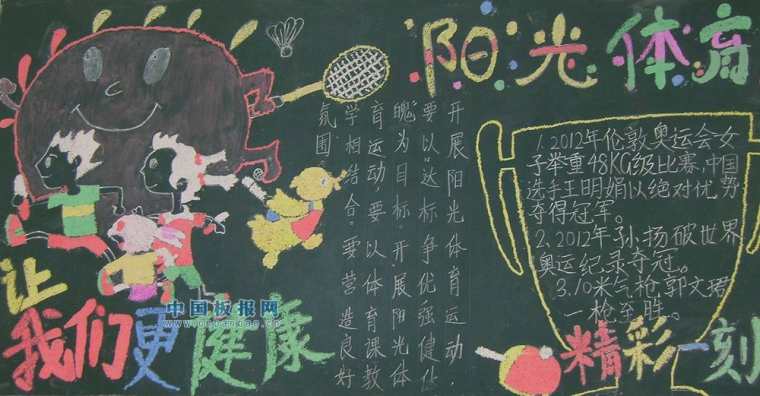 阳光体育
开展阳光体育运动，
要以“达标争优强健体
魄”为目标。开展阳光体
育运动，要以体育课教
学相结合。要营造良好
氛围
1. 2012年伦敦奥运会女
子举重48KG级比赛，中国
选手王明娟以绝对优势
夺得冠军。
2. 2012年孙扬破世界
奥运纪录夺冠。
3. 10米气枪郭文珺
一枪至胜。
精彩一刻
让
我们更健康
中国板报网